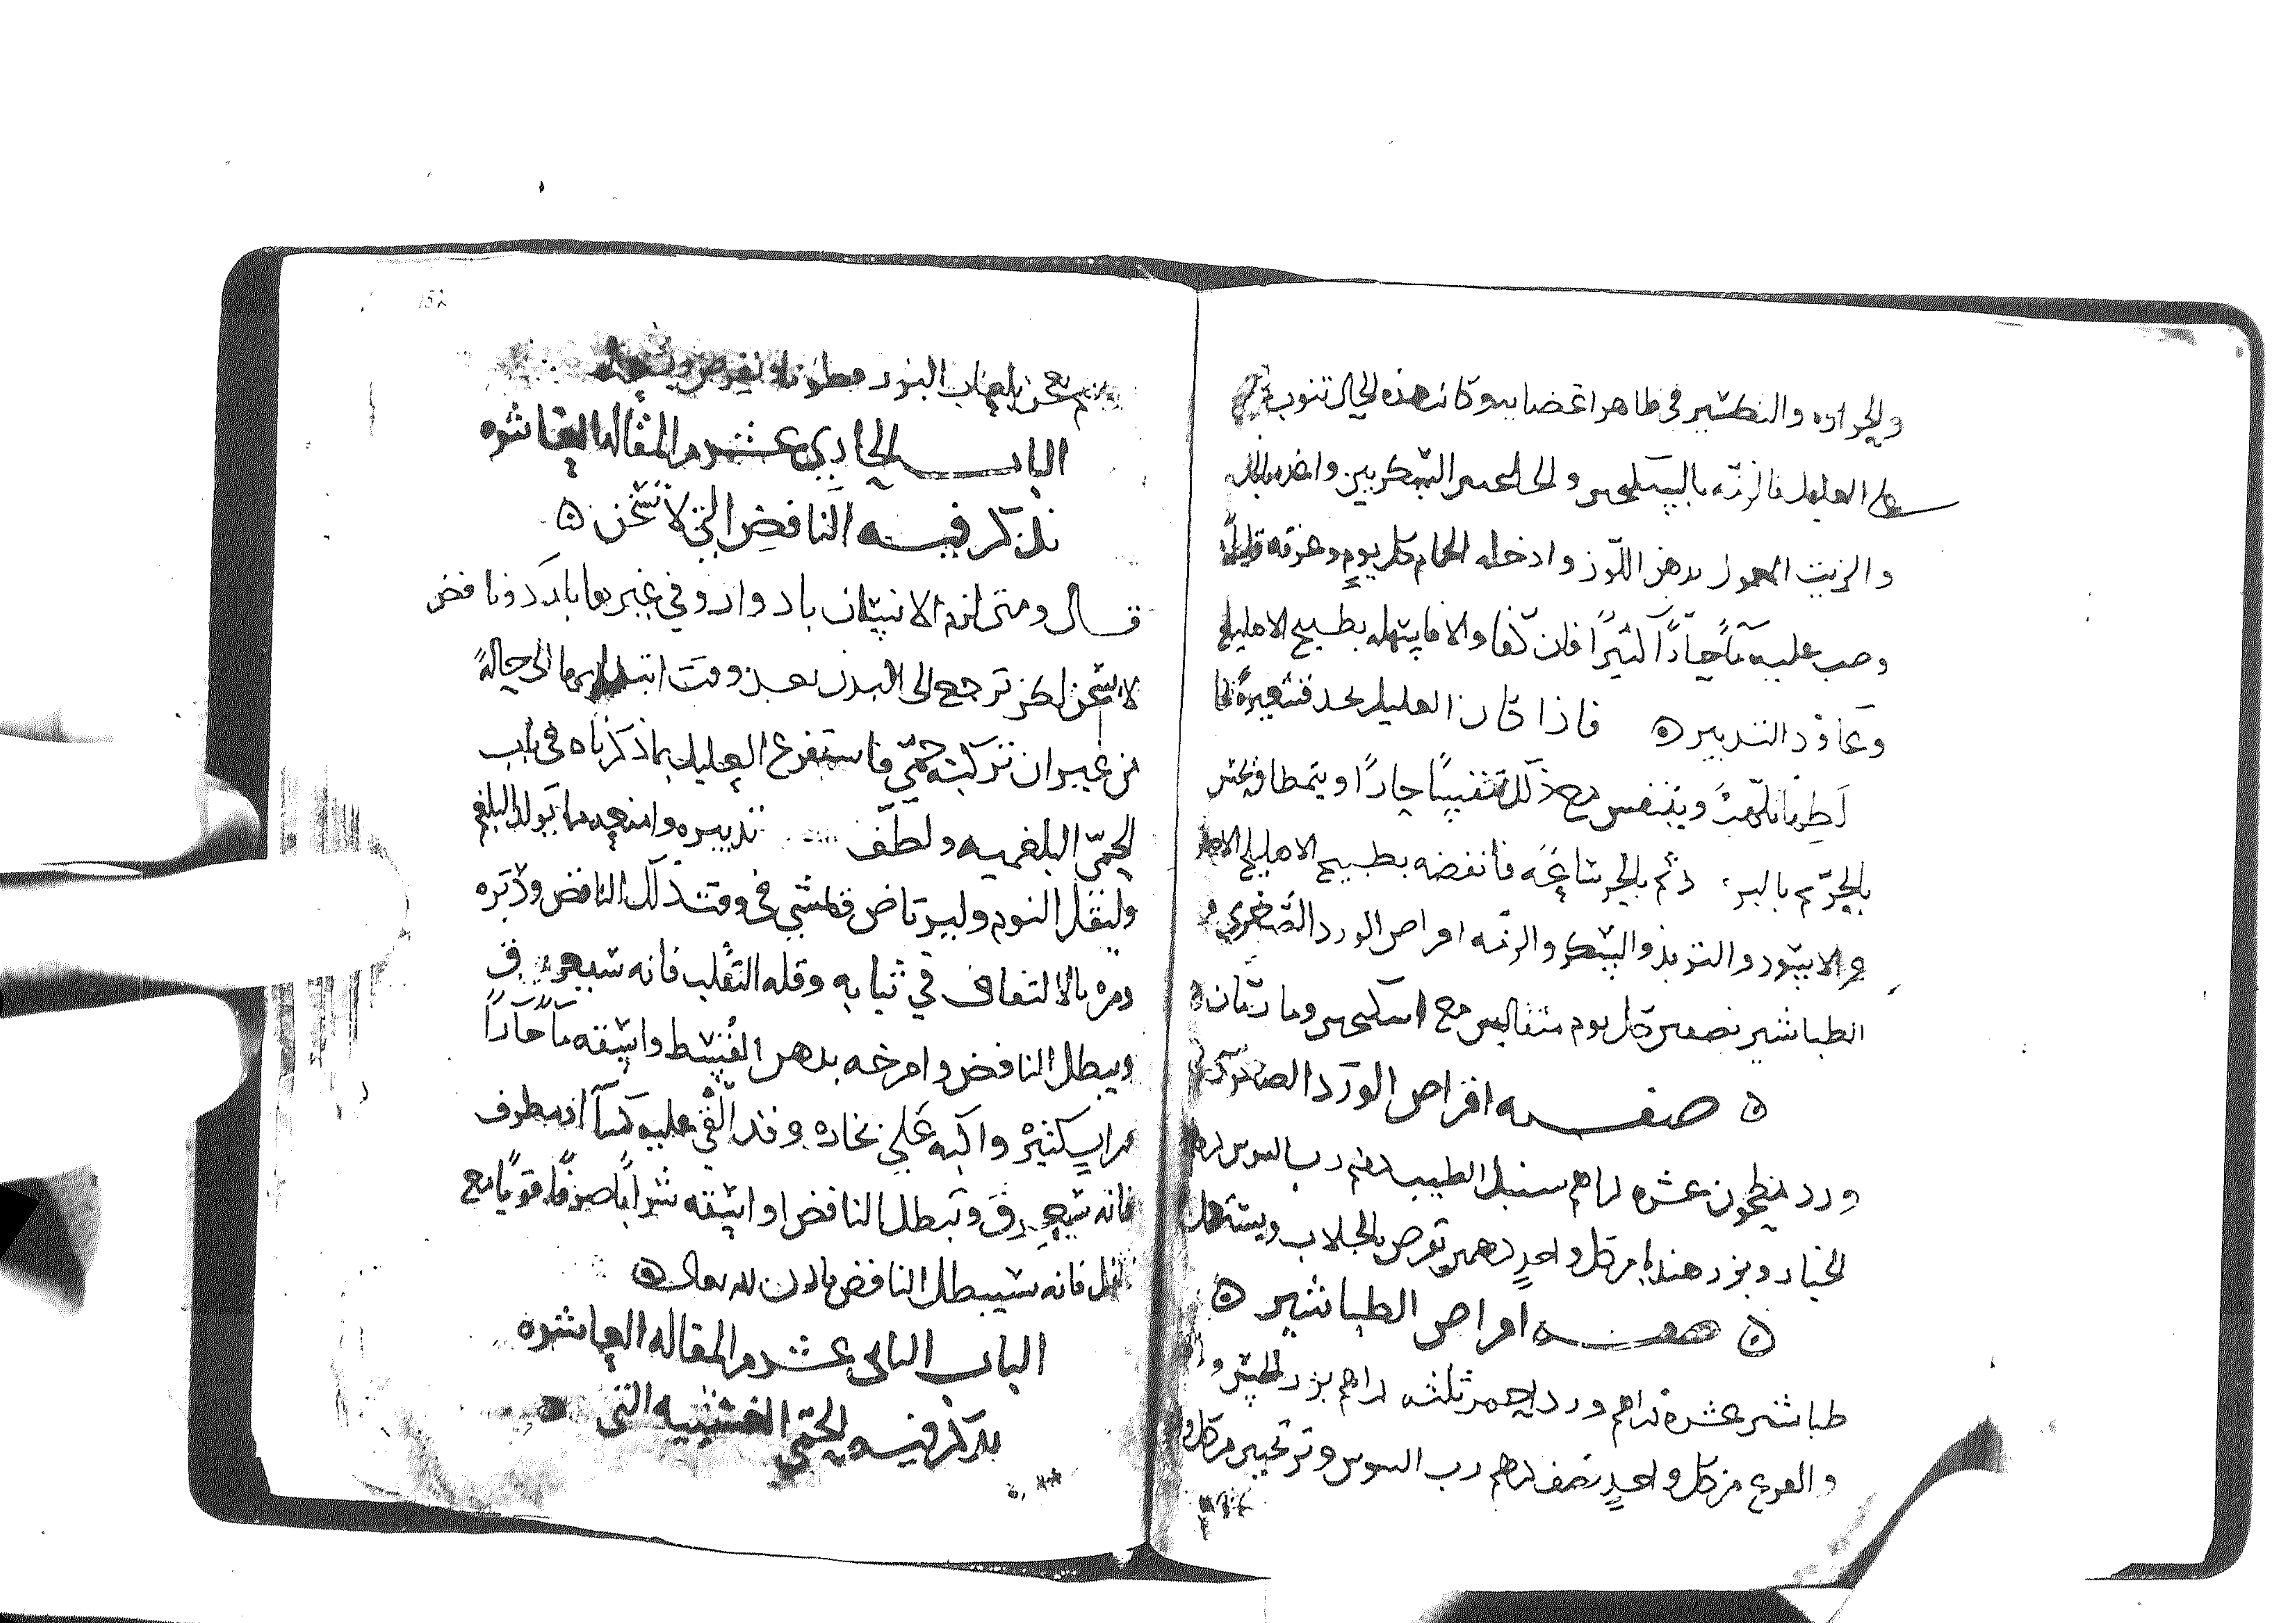 والحراره والتكسير في ظاهر اعضايه وكانت هذه الحال تنوب
على العليل فالزمه بالسكنجبين والجلنجبين السكريين واغذه بالخل
والزيت المعمول بدهن اللوز وادخله الحمام كل يوم وعرقه قليلاً
وصب عليه مآً حآداً كثيراً فان كفا والا فاسهله بطبيخ الاهليلج
وعاود التدبير ۵ فاذا كان العليل يجد قشعريرةً
لطيفا تلهث ويتنفس مع ذلك تنفسًا حادًا ويتمطا
بالحر ثم بالبرد ثم بالحر ساعه فانفضه بطبيخ الاهليلج
والتربذ والسكر والزمه اقراص الورد الصغرى
الطباشير نصفين كل يوم مثقالين مع اسكنجبين وما رمان
۵ صفـــه اقراص الورد
ورد مطحون عشره دراهم سنبل الطيب درهم رب السوس
الخيار وبزر هندبا من كل واحدٍ درهمين تقرص بالجلاب ويستعمل
۵ صفـــه اقراص الطباشير ۵
طباشير عشرة دراهم ورد احمر ثلثه دراهم بزر
والقرع من كل واحدٍ نصف درهم رب السوس وترنجبين من كل
ثم يعجن بلعاب البزر قطونا
البابـــ الحادي عشر من المقاله العاشره
نذكر فيـــه النافض التي لا تسخن ۵
قـــال ومتى لزم الانسان بادوار وفي غيرها بارد ونافض
لا تسخن لكن ترجع الى البدن بعد وقت ابتدايها الى حالةٍ
من غير ان تركبته حمّى فاستفرغ العليل بما ذكرناه في باب
الحمّى البلغميه ولطّف تدبيره وامنعه ما يولد البلغم
وليقلل النوم وليرتاض قلمشي في وقت ذلك النافض ودبّره
ومره بالالتفاف في ثيابه وقله التقلب فانه سيعرق
ويبطل النافض وامرخه بدهن القسط واسقه مآً حآراً
مرارٍ كثيرهْ واكبه على بخاره وقد القي عليه كسآ
فانه سيعرق وتبطل النافض او اسقه شراباً صرفاً قوياً مع
فانه سيبطل النافض باذن الله تعالى ۵
الباب الثاني عشر من المقاله العاشره
نذكر فيـــه الحمّى الغشييه التي